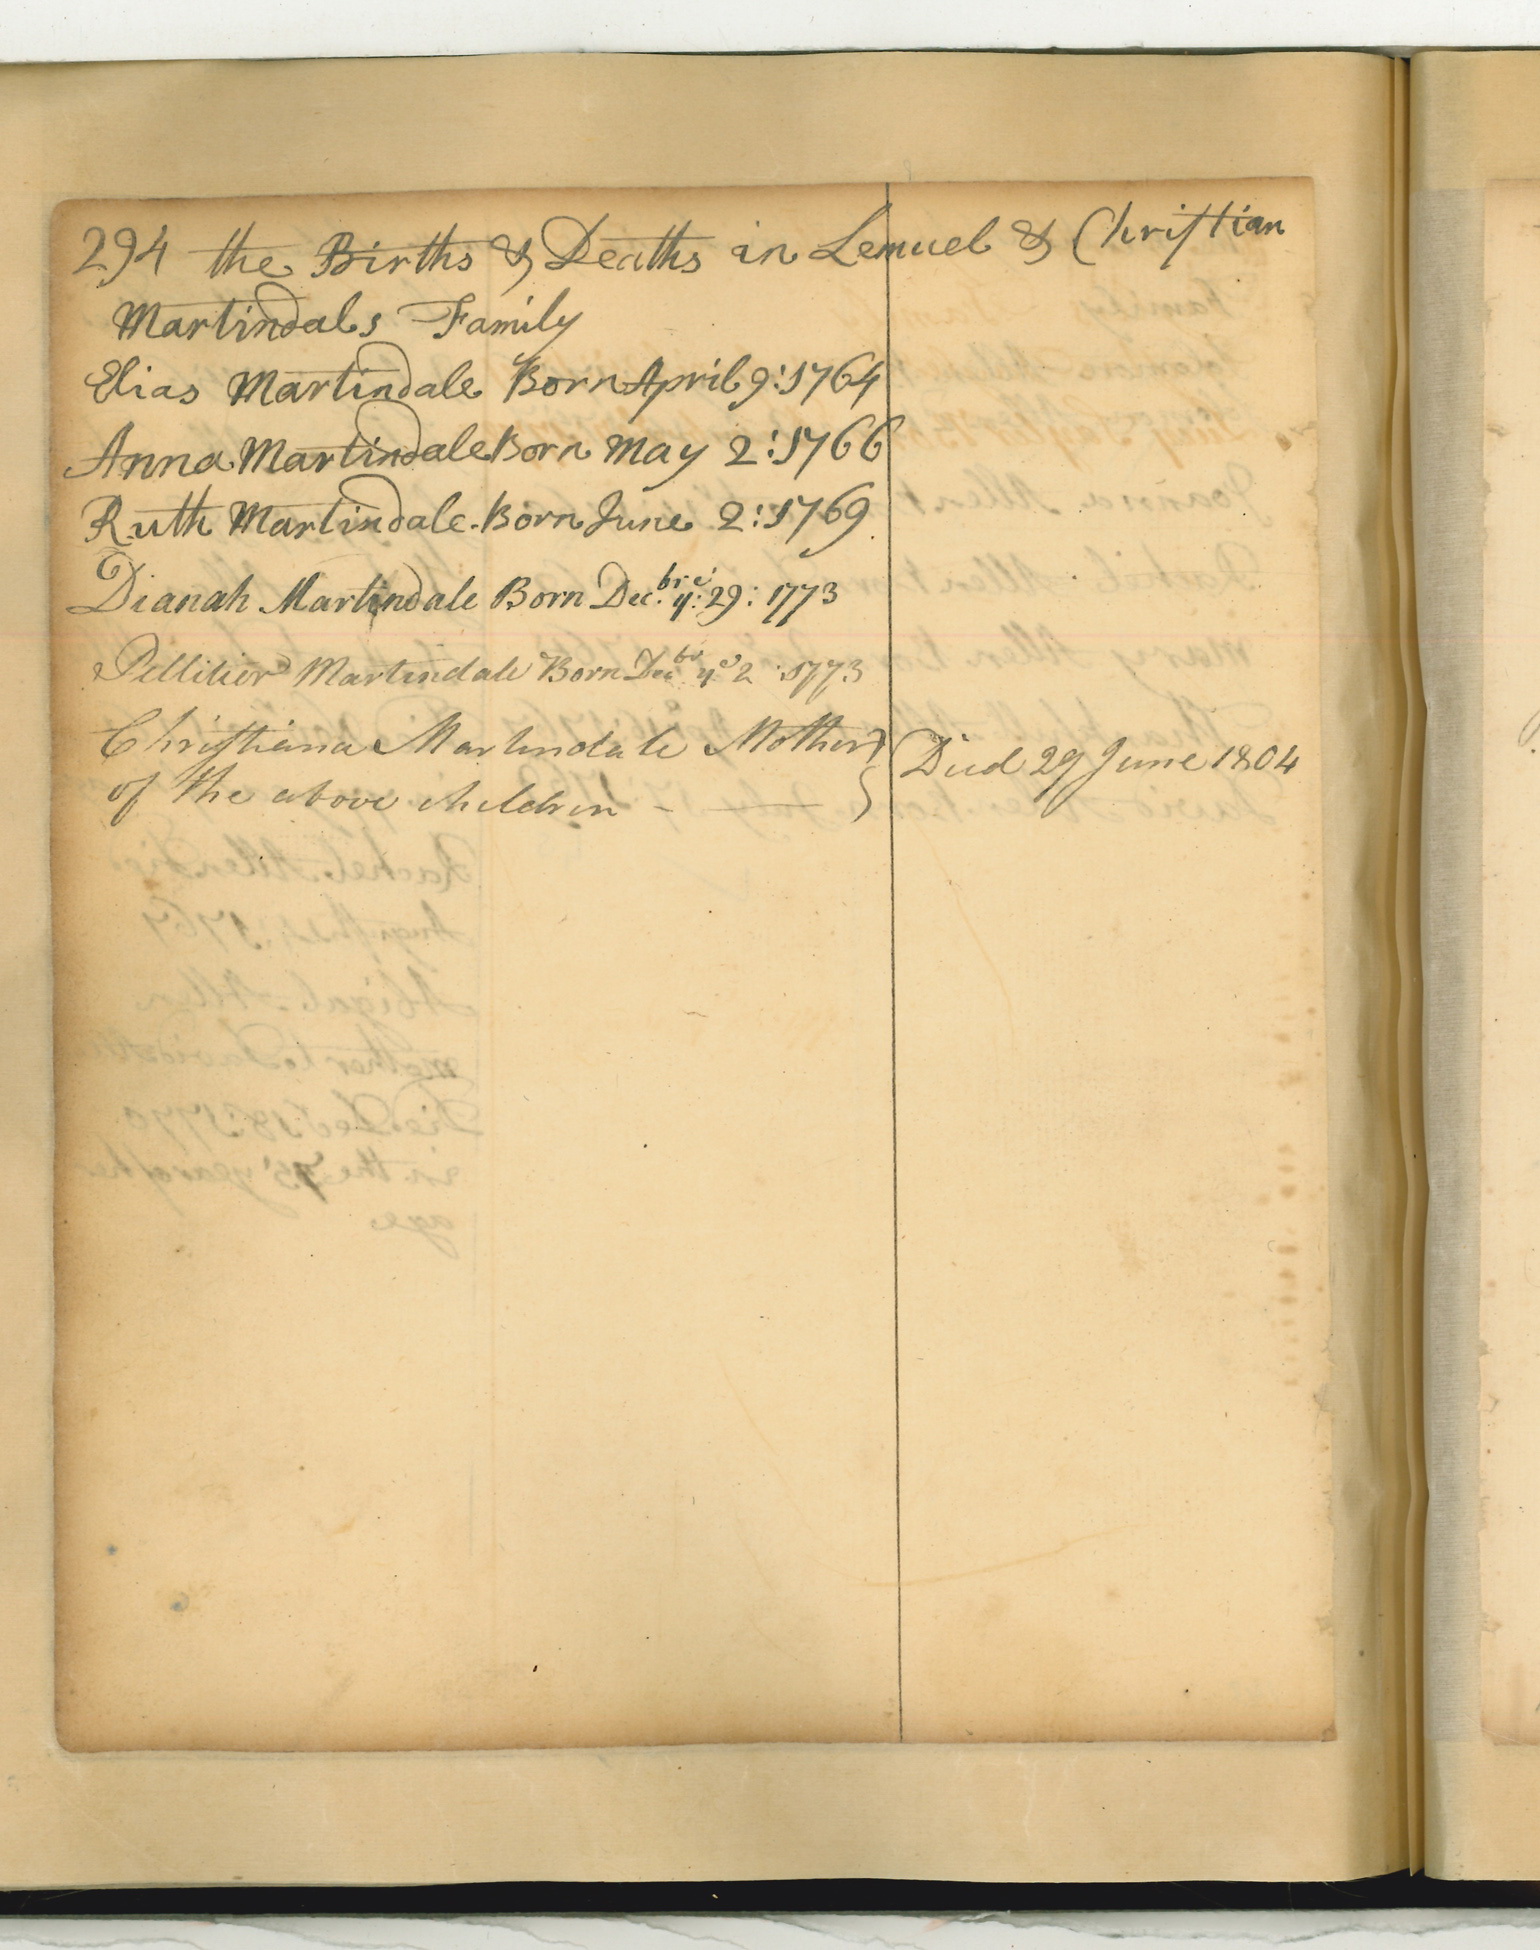 294 the Births & Deaths in Lemuel & Christian
Martindals Family
Elias Martindale Born April 9: 1764
Anna Martindale Born May 2: 1766
Ruth Martindale. Born June 2: 1769.
Dianah Martindale Born Decbr. ye: 29: 1773
Martindale Born Decbr ye 2 : 1773
Christiana Martindale Mother } Died 29 June 1804
of the above children - —